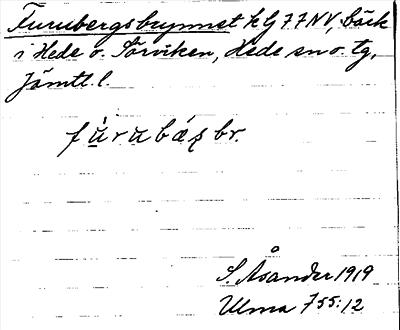 Furubergsbrynnet k G 77 NV, bäck
i Hede o. Sörviken, Hede sn o. tg,
Jämtl. l.
fùrubáʂ br.
S. Åsander 1919
Ulma 755:12